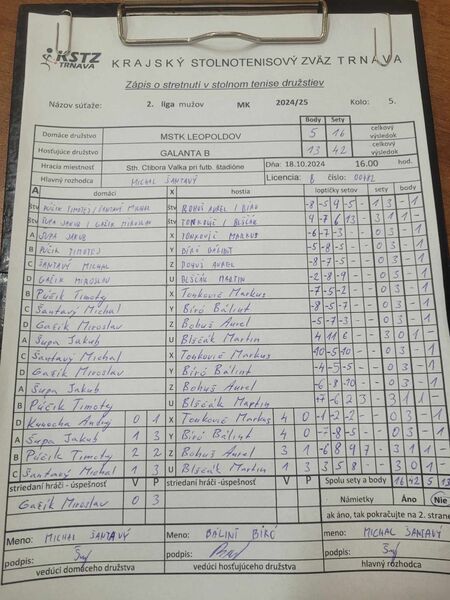 KSTZ
TRNAVA
KRAJSKÝ STOLNOTENISOVÝ ZVÄZ TRNAVA
Zápis o stretnutí v stolnom tenise družstiev
Názov súťaže: 2. liga mužov MK 2024/25 Kolo: 5.
Body Sety
Domáce družstvo MSTK LEOPOLDOV 5 16 celkový výsledok
Hosťujúce družstvo GALANTA B 13 42 celkový výsledok
Hracia miestnosť Sth. Ctibora Valka pri futb. štadióne Dňa: 18.10.2024 16.00 hod.
Hlavný rozhodca MICHAL ŠANTAVÝ Licencia: B číslo:
A domáci X hostia loptičky setov sety body
štv PÚČIK TIMOTEJ / ŠANTAVÝ MICHAL štv BOHUŠ AUREL / BIRÓ -8 -5 9 -5 - 1 3 - 1
štv ŠUPA JAKUB / GAŠIK MIROSLAV štv TONKOVIČ / BLŠČÁK
A ŠUPA JAKUB X TONKOVIČ MARKUS -6 -7 -3 - - 0 3 - 1
B PÚČIK TIMOTEJ Y BIRÓ BÁLINT -5 -8 -5 - - 0 3 - 1
C ŠANTAVÝ MICHAL Z BOHUŠ AUREL -8 -7 -5 - - 0 3 - 1
D GAŠIK MIROSLAV U BLŠČÁK MARTIN -2 -8 -9 - - 0 3 - 1
B Púčik Timoty X Tonkovič Markus -7 -5 -2 - - 0 3 - 1
C Šantavý Michal Y Biró Bálint -8 -5 -7 - - 0 3 - 1
D Gašik Miroslav Z Bohuš Aurel -5 -7 -3 - - 0 3 - 1
A Šupa Jakub U Blščák Martin 4 11 6 - - 3 0 1 -
C Šantavý Michal X Tonkovič Markus -10 -5 -10 - - 0 3 - 1
D Gašik Miroslav Y Biró Bálint
A Šupa Jakub Z Bohuš Aurel -6 -8 -10 - - 0 3 - 1
B Púčik Timoty U Blščák Martin 3 1 1 -
D Kunocha Andrej 0 1 X Tonkovič Markus 4 0 -1 -2 -2 - - 0 3 - 1
A Šupa Jakub 1 3 Y Biró Bálint 4 0 0 3 - 1
B Púčik Timoty 2 2 Z Bohuš Aurel 3 1 3 1 1 -
C Šantavý Michal 1 3 U Blščák Martin 1 3 3 5 8 - - 3 0 1 -
striedaní hráči - úspešnosť V P striedaní hráči - úspešnosť V P Spolu sety a body 16 42 5 13
Gašik Miroslav 0 3 Námietky Áno Nie
ak áno, tak pokračujte na 2. strane
Meno: MICHAL ŠANTAVÝ Meno: BÁLINT BIRÓ meno: MICHAL ŠANTAVÝ
podpis: podpis: podpis:
vedúci domáceho družstva vedúci hosťujúceho družstva hlavný rozhodca